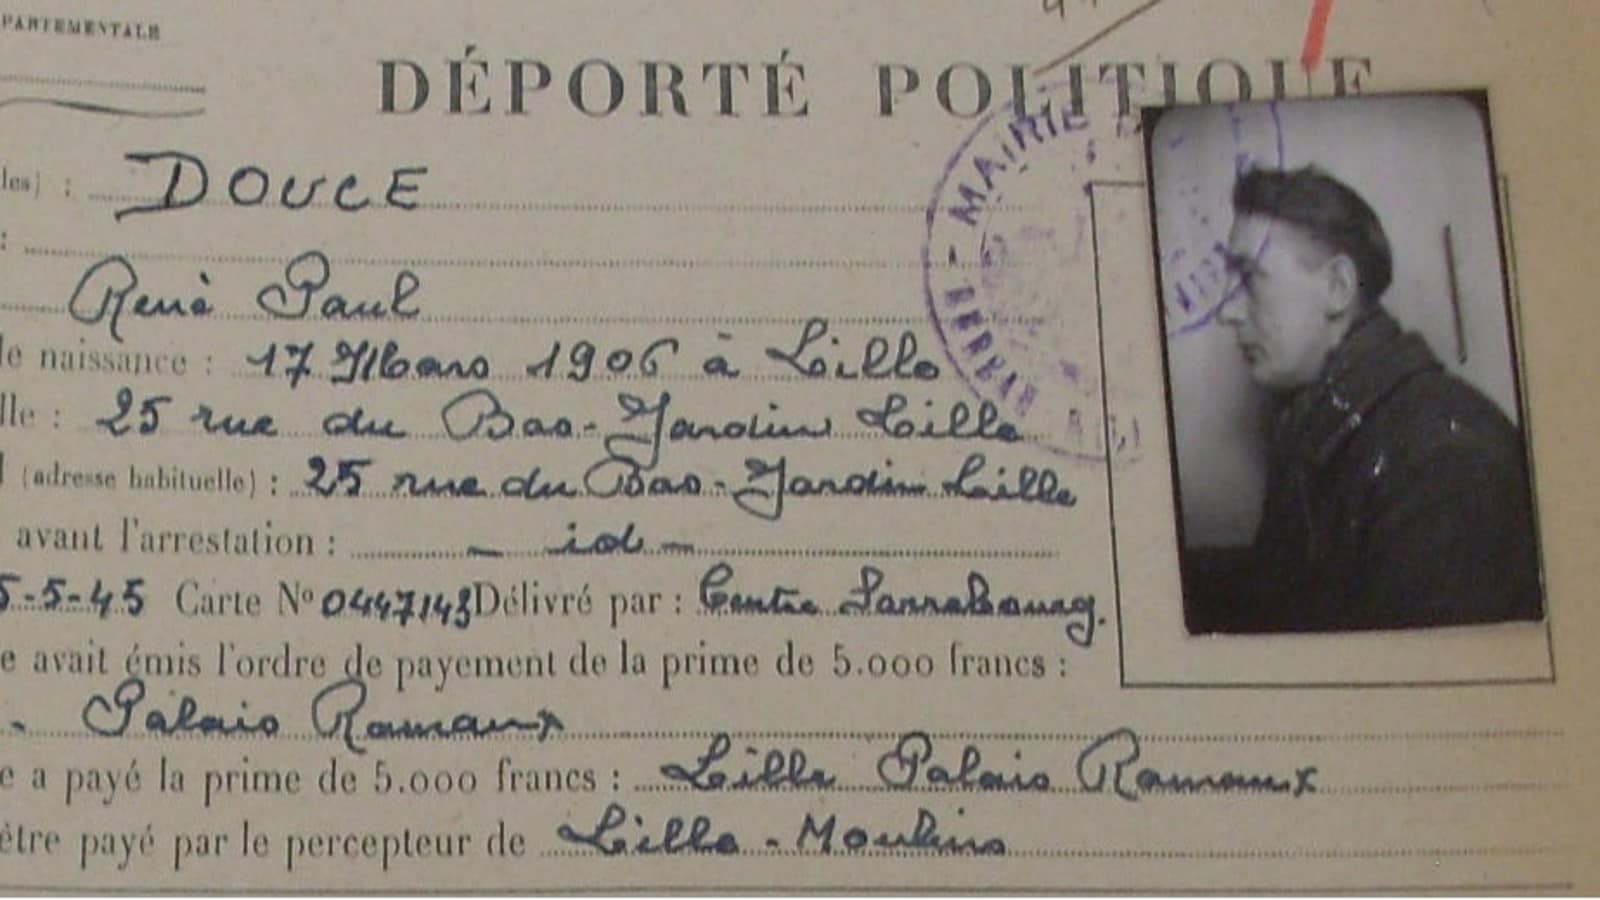 PARTEMENTALE
DÉPORTÉ POLITIQUE
MAIRIE
les) : DOUCE
:
René Paul
le naissance : 17 Mars 1906 à Lille
lle : 25 rue du Bas-Jardin Lille
(adresse habituelle) : 25 rue du Bas-Jardin Lille
avant l'arrestation : - id -
5-5-45 Carte Nº 0447143 Délivré par : Centre Sarrebourg.
e avait émis l'ordre de payement de la prime de 5.000 francs :
Palais Rameaux
e a payé la prime de 5.000 francs : Lille Palais Rameaux
être payé par le percepteur de Lille-Moulins